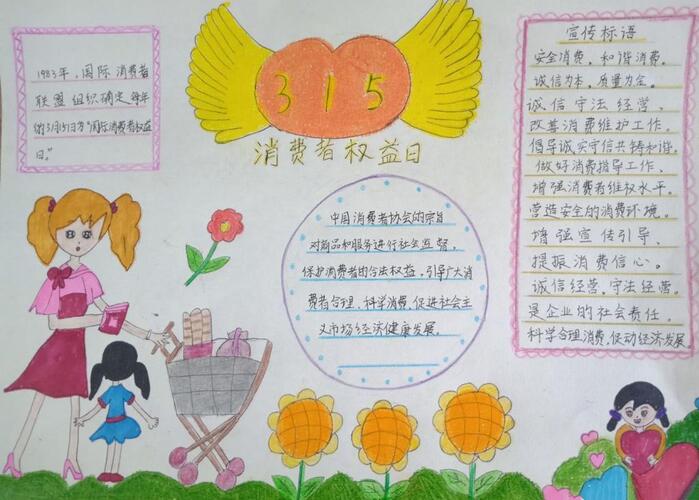 1983年，国际消费者
联盟组织确定每年
的3月15日为“国际消费者权益
日”。
315
消费者权益日
中国消费者协会的宗旨
对商品和服务进行社会监督，
保护消费者的合法权益，引导广大消
费者合理、科学消费，促进社会主
义市场经济健康发展。
宣传标语
安全消费，和谐消费。
诚信为本，质量为全。
诚信守法经营、
改善消费维护工作。
倡导诚实守信共铸和谐。
做好消费指导工作、
增强消费者维权水平。
营造安全的消费环境。
增强宣传引导、
提振消费信心。
诚信经营，守法经营。
是企业的社会责任。
科学合理消费，促动经济发展